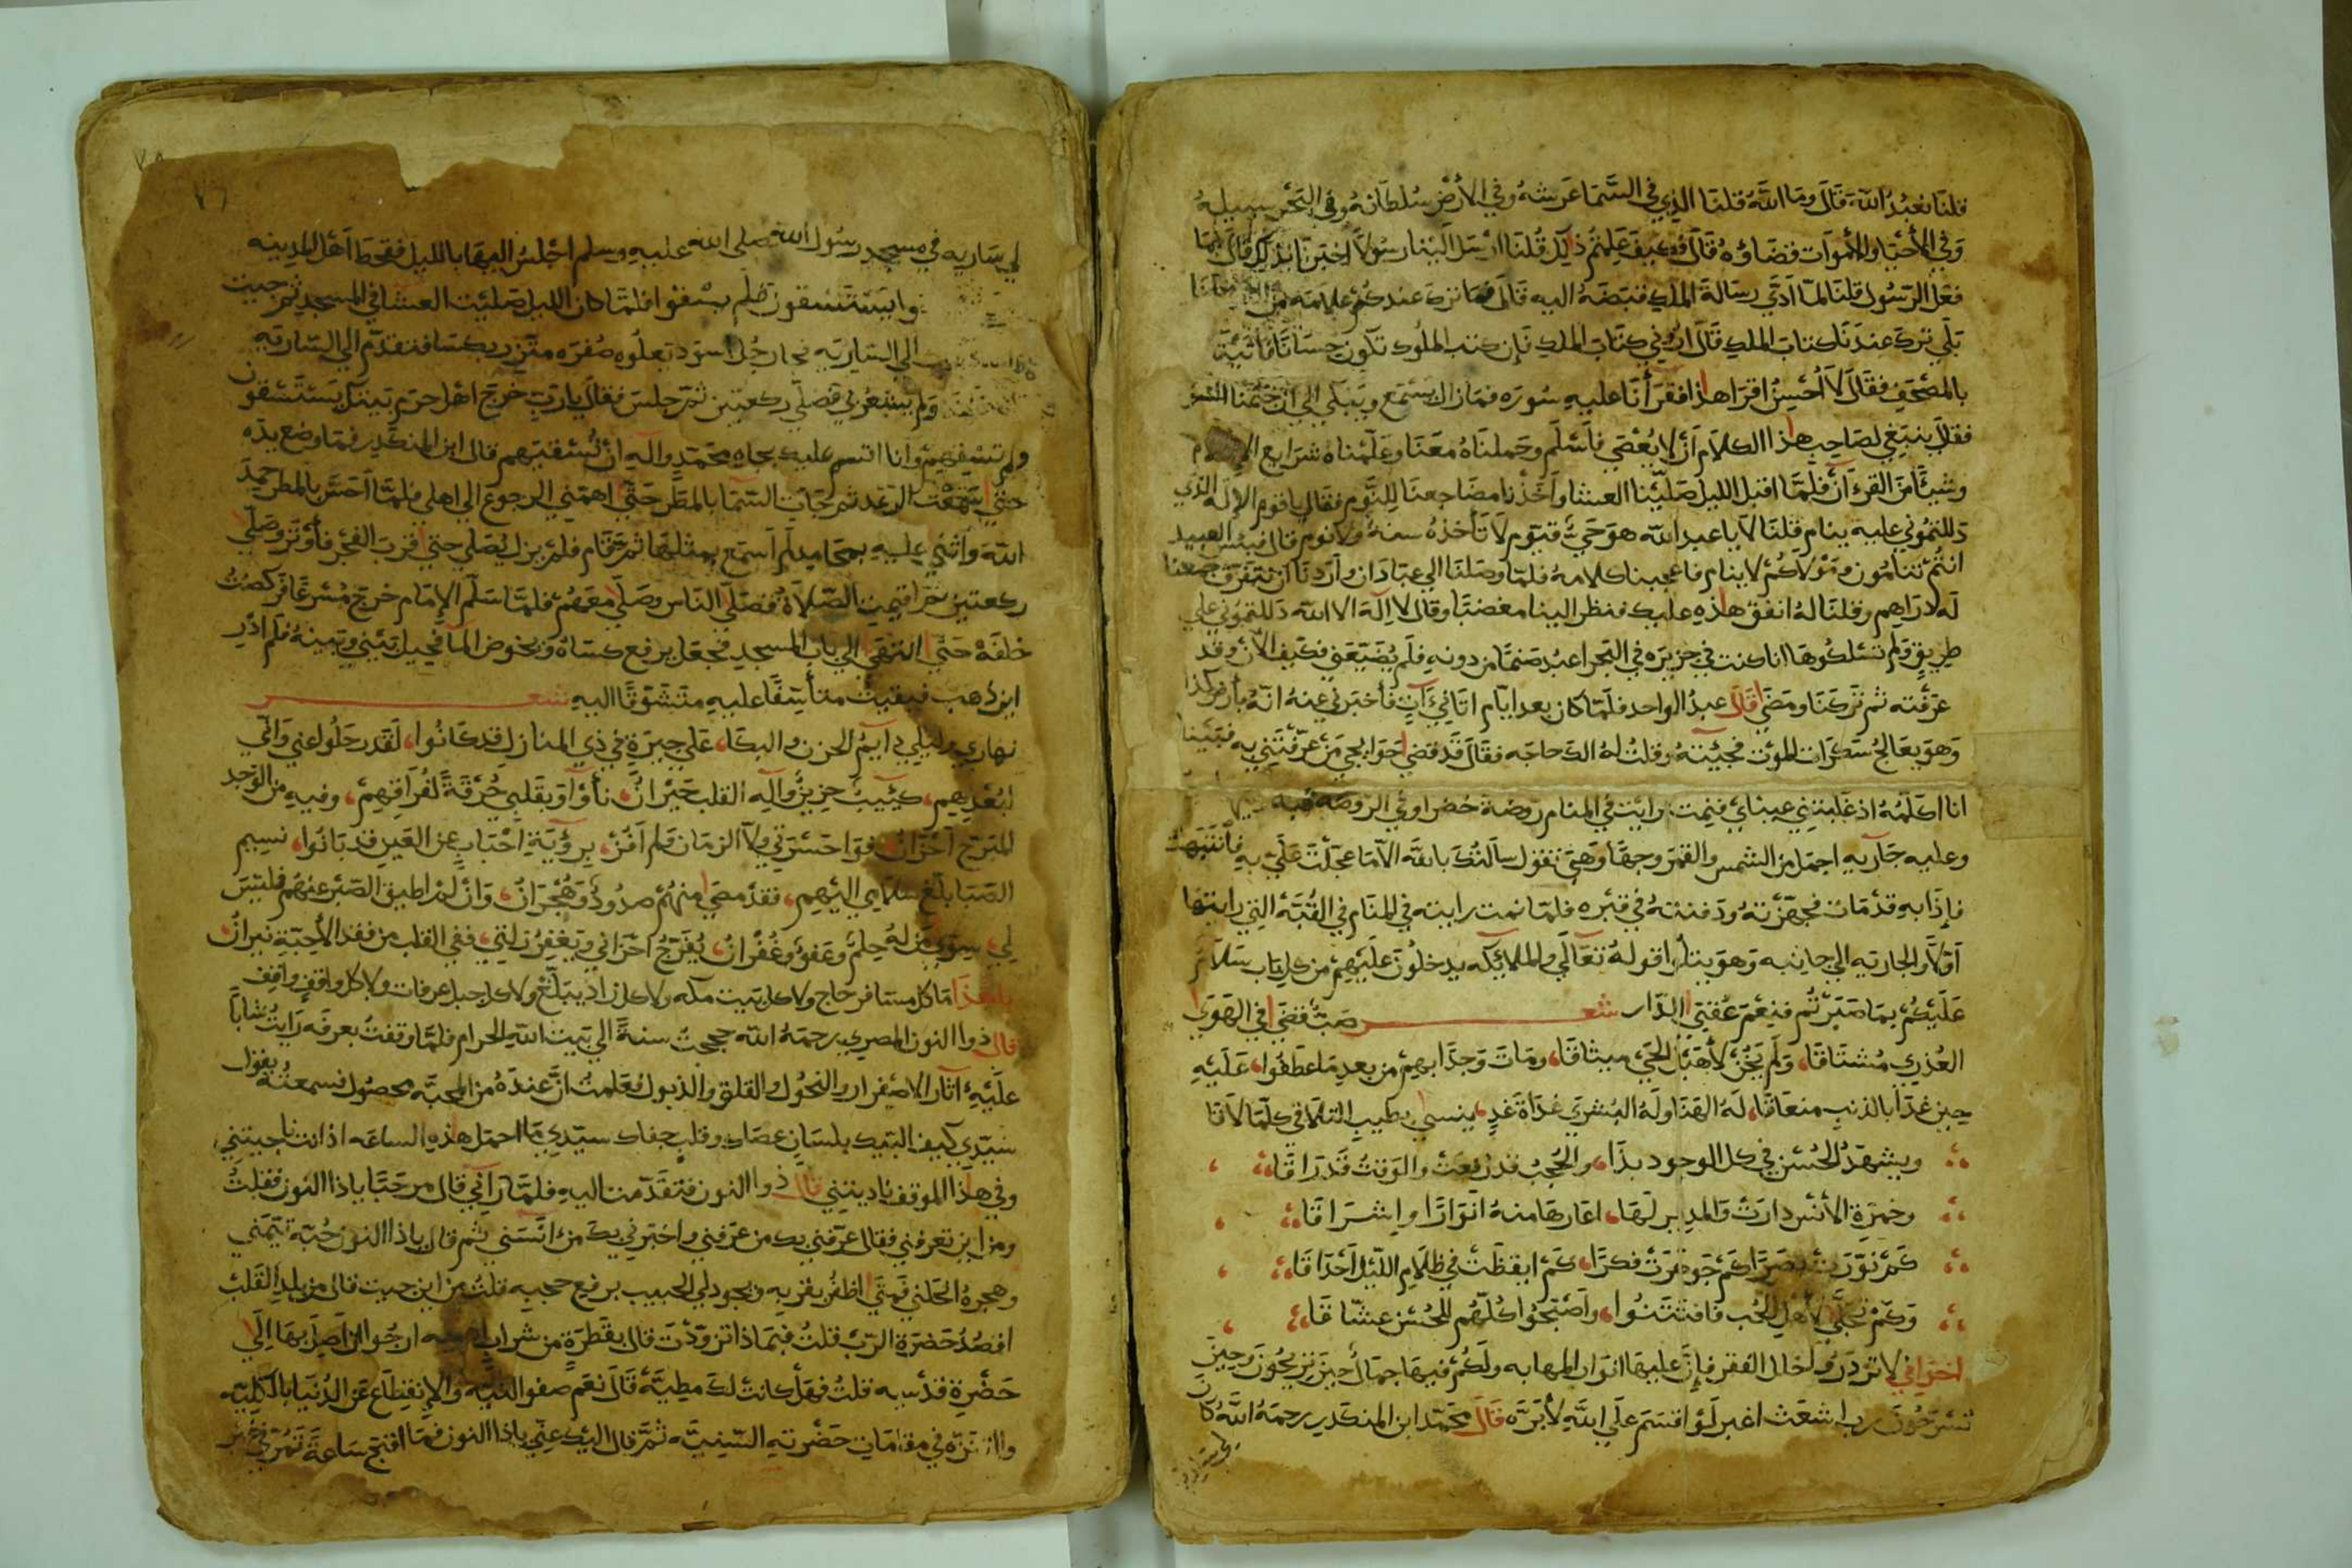 قلنا نعبد الله قال وما الله قلنا الذي في السما عرشه وفي الأرض سلطانه وفي البحر سبيله
وفي الأحيا والأموات قضاؤه قال وكيف علمتم ذلك قلنا ارسل الينا رسولا اخبرنا بذلك قال فما
فعل الرسول قلنا لما ادى رسالة الملك قبضه اليه قال فما ترك عندكم علامه من
بلى ترك عندنا كتاب الملك قال اروني كتاب الملك فإن كتب الملوك تكون حسانا فأتيته
بالمصحف فقال لا أحسن اقرا هذا فقرأنا عليه سوره فما زال يستمع ويبكي الى ان ختمنا السور
فقال ينبغي لصاحب هذا الكلام أن لا يعصى فأسلم وحملناه معنا وعلمناه شرايع الإسلام
وشيئا من القرءآن فلما اقبل الليل صلينا العشا وأخذنا مضاجعنا للنوم فقال يا قوم الإله الذي
دللتموني عليه ينام قلنا لا يا عبد الله هو حي قيوم لا تأخذه سنة ولا نوم قال فبئس العبيد
انتم تنامون ومولاكم لا ينام فاعجبنا كلامه فلما وصلنا الى عبادان وأردنا أن نتفرق جمعنا
له دراهم وقلنا له انفق هذه عليك فنظر الينا مغضبا وقال لا اله الا الله دللتموني على
طريق ولم تسلكوها انا كنت في جزيره في البحر اعبد صنما من دونه فلم يضيعني فكيف الآن وقد
عرفته ثم تركنا ومضى قال عبد الواحد فلما كان بعد ايام اتاني آت فأخبرني عنه انه بأرض كذا
وهو يعالج سكرات الموت فجيته وقلت له الك حاجه فقال قد قضى حوايجي من عرفتني به فبينا
انا اكلمه اذ غلبتني عيناي فنمت رايت في المنام روضة خضرا وفي الروضه قبه
وعليه جاريه اجمل من الشمس والقمر وجها وهي تقول سالتك بالله الا ما عجلت علي به فأنتبهت
فإذا به قد مات فجهزته ودفنته في قبره فلما نمت رايته في المنام في القبة التي رايتها
أولا والجاريه الى جانبه وهو يتلو اقوله تعالى والملايكه يدخلون عليهم من كل باب سلام
عليكم بما صبرتم فنعم عقبى الدار شعر صب قضى في الهوى
العذري مشتاقا، ولم يخن لأهيل الحي ميثاقا، ومات وجدا بهم من بعد ما عطفوا، عليه
حين غدا بالذنب منعاقا، له الهنا وله البشرى غداة غد، ينسى بطيب التلاقي كلما لاقا
ويشهد الحسن في كل الوجود بدا، والحجب قد رفعت والوقت قد راقا
وخمرة الأنس دارت والمدير لها، اعارها منه انوارا وإشراقا
كم نورت بصرا كم جوهرت فكرا، كم ايقظت في ظلام الليل أحداقا
وكم تجلى لأهل الحب فافتتنوا، واصبحوا كلهم للحسن عشاقا
اخواني لا تزدروا خلل الفقر فإن عليها انوار المهابه ولكم فيها جمال حين تريحون وحين
تسرحون رب اشعث اغبر لو اقسم على الله لأبره قال محمد ابن المنكدر رحمه الله كان
لي ساريه في مسجد رسول الله صلى الله عليه وسلم اجلس اليها بالليل فقحط اهل المدينه
وا يستسقون فلم يسقوا فلما كان الليل صليت العشا في المسجد ثم جيت
الى الساريه فجا رجل اسود تعلوه صفره متزر بكسا فتقدم الى الساريه
ولم يشعر بي فصلى ركعتين ثم جلس فقال يا رب خرج اهل حرم نبيك يستسقون
ولم تسقهم وانا اقسم عليك بجاه محمد وآله ان تسقيهم قال ابن المنكدر فما وضع يده
حتى سمعت الرعد ثم جات السما بالمطر حتى اهمني الرجوع الى اهلي فلما احس بالمطر حمد
الله واثنى عليه بمحامد لم اسمع بمثلها ثم قام فلم يزل يصلي حتى قرب الفجر فأوتر وصلى
ركعتين ثم اقيمت الصلاة فصلى الناس وصلى معهم فلما سلم الإمام خرج مسرعا فركضت
خلفه حتى انتهى الى باب المسجد فجعل يرفع كساه ويخوض الما فحيل بيني وبينه فلم ادر
اين ذهب فبقيت متأسفا عليه متشوقا اليه شعر
نهاري وليلي دايم الحزن والبكا، على جيرة في ذي المنازل قد كانوا، لقد رحلوا عني واني
لبعدهم، كئيب حزين وآله القلب حيران، نأوا وبقلبي حرقة لفراقهم، وفيه من الوجد
المبرح أحزان، فوا حسرتي ولا الزمان ولم أفز، برؤية احباب عن العين قد بانوا، نسيم
الصبا بلغ سلامي اليهم، فقد مضى منهم صدود وهجران، وان لم اطيق الصبر عنهم فليس
لي، سوى من له حلم وعفو وغفران، يفرج احزاني ويغفر زلتي، ففي القلب من فقد الأحبة نيران
يا هذا ما كل مسافر حاج ولا كل بيت مكه ولا كل زاد يبلغ ولا كل جبل عرفات ولا كل واقف واقف
قال ذوا النون المصري رحمه الله حججت سنة الى بيت الله الحرام فلما وقفت بعرفه رايت شابا
عليه اثار الاصفرار والنحول والقلق والذبول فعلمت ان عنده من المحبه محصول فسمعته يقول
سيدي كيف البيك بلسان عصاك وقلب جفاك سيدي ما احمل هذه الساعه اذ انت ناجيتني،
وفي هذا الموقف ناديتني قال ذوا النون فتقدمت اليه فلما رآني قال مرحبا يا ذا النون فقلت
ومن اين تعرفني فقال عرفني بك من عرفني واخبرني بك من انسني ثم قال يا ذا النون حبه تيمني
وهجره انحلني فمتى اظفر بقربه ويجود لي الحبيب برفع حجبه قلت من اين جيت قال من بلد القلب
اقصد حضرة الرب قلت فبماذا تزودت قال بقطرة من شراب ارجوا ان اصل بها الى
حضرة قدسه قلت فهل كانت لك مطيه قال نعم صفو النيه والإنقطاع عن الدنيا بالكليه
والتنزه في مقامات حضرته السنيه ثم قال اليك عني يا ذا النون فما اقبح ساعة تمر في غير